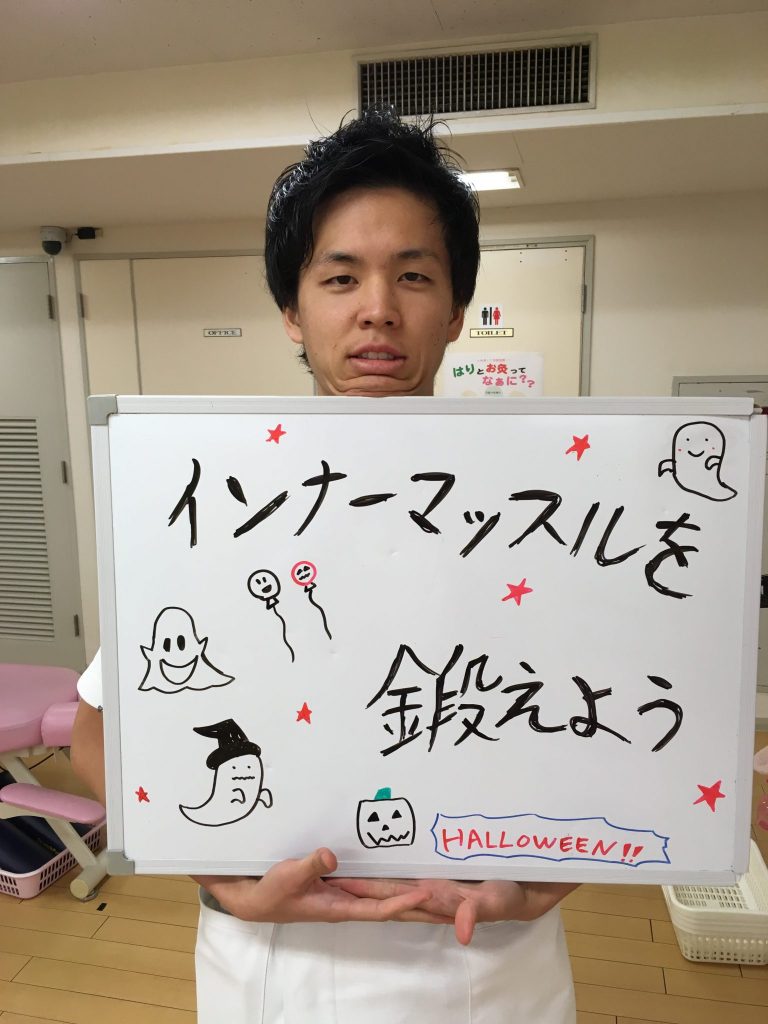 OFFICE
TOILET
はりとお灸って
なぁに??
インナーマッスルを
鍛えよう
HALLOWEEN!!